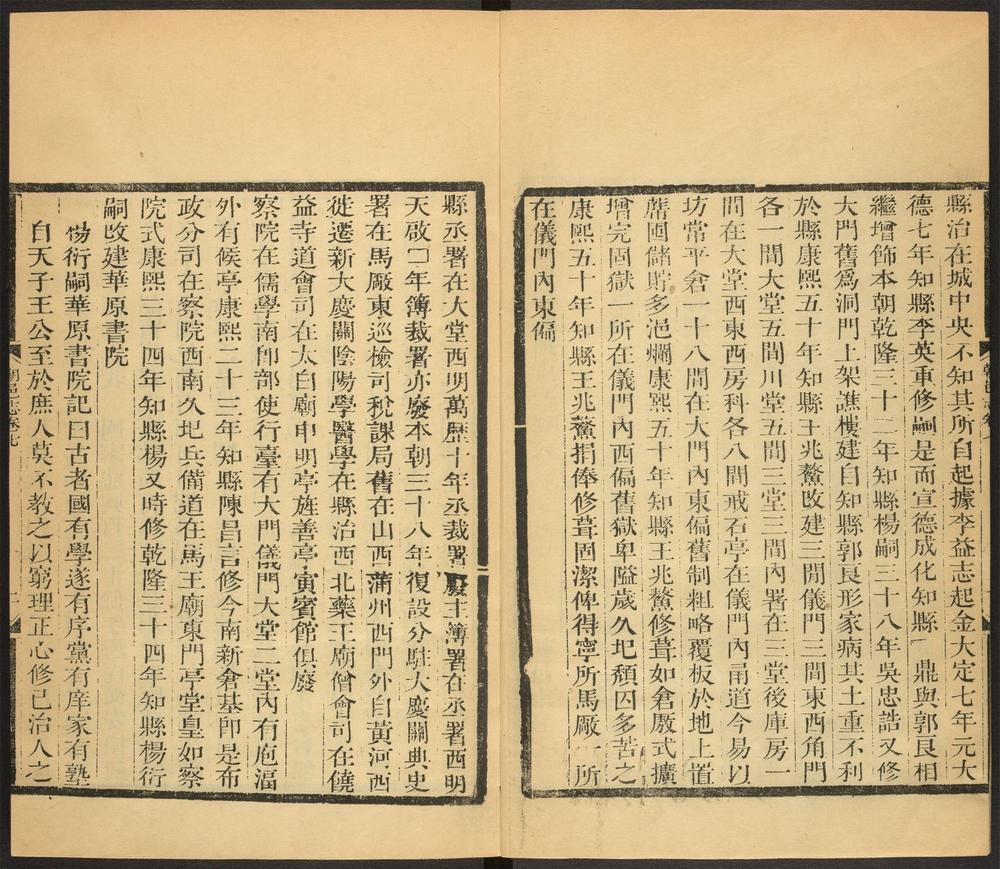 縣治在城中央不知其所自起據李益志起金大定七年元大
德七年知縣李英重修嗣是而宣德成化知縣鼎與郭良相
繼增飾本朝乾隆三十二年知縣楊嗣三十八年吳忠誥又修
大門舊爲洞門上架譙樓建自知縣郭良形家病其土重不利
於縣康熙五十年知縣王兆鰲改建三間儀門三間東西角門
各一間大堂五間川堂五間三堂三間內署在三堂後庫房一
間在大堂西東西房科各八間戒石亭在儀門內甬道今易以
坊常平倉一十八間在大門內東偏舊制粗略覆板於地上置
蓆囤儲貯多浥爛康熙五十年知縣王兆鰲修葺如倉厫式擴
增完固獄一所在儀門內西偏舊獄卑隘歲久圮頹囚多苦之
康熙五十年知縣王兆鰲捐俸修葺固潔俾得寧所馬厰一所
在儀門內東偏
縣丞署在大堂西明萬歷十年丞裁署廢主簿署在丞署西明
天啟年簿裁署亦廢本朝三十八年復設分駐大慶關典史
署在馬厰東巡檢司稅課局舊在山西蒲州西門外自黃河西
徙遷新大慶關陰陽學醫學在縣治西北藥王廟僧會司在饒
益寺道會司在太白廟申明亭旌善亭寅賓館俱廢
察院在儒學南卽部使行臺有大門儀門大堂二堂內有庖湢
外有候亭康熙二十三年知縣陳昌言修今南新倉基卽是布
政分司在察院西南久圮兵備道在馬王廟東門亭堂皇如察
院式康熙三十四年知縣楊又時修乾隆三十四年知縣楊衍
嗣改建華原書院
楊衍嗣華原書院記曰古者國有學遂有序黨有庠家有塾
自天子王公至於庶人莫不教之以窮理正心修己治人之
朝邑志卷七